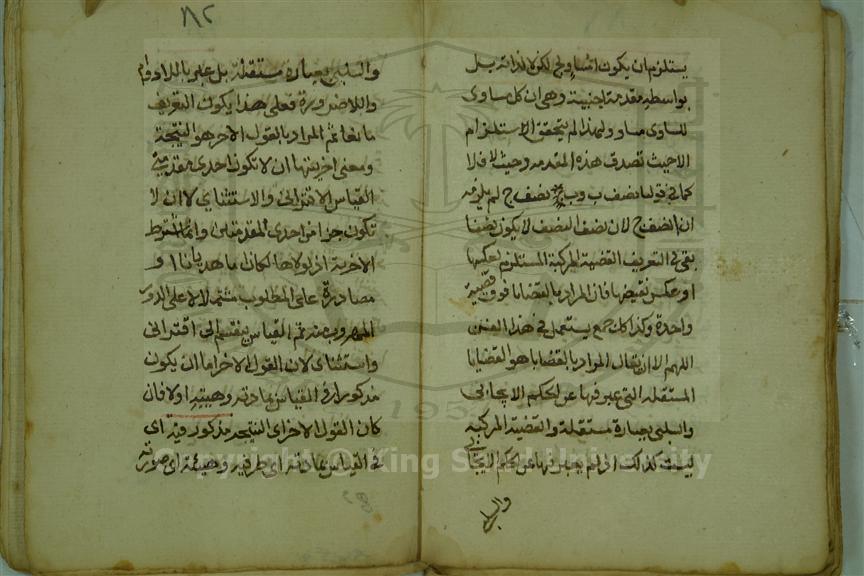 يستلزم ان يكون امساو لج لكن لا لذاته بل
بواسطة مقدمة اجنبية وهي ان كل مساوى
المساوى مساو ولهذا لم يتحقق الاستلزام
الا حيث تصدق هذه المقدمة وحيث لا فلا
كما في قولنا نصف ب و ب نصف ج لم يلزمه
ان ا نصف ج لان نصف النصف لا يكون نصفا
بقى في التعريف القضية المركبة المستلزم لعكسها
او عكس نقيضها فان المراد بالقضايا فوق قضية
واحدة وكذا كل جمع يستعمل في هذا الفن
اللهم الا ان يقال المراد بالقضايا هو القضايا
المستقلة التي عبر فيها عن الحكم الايجابى
والسلبى بعبارة مستقلة والقضية المركبة
ليست كذلك اذ لم يعبر فيها عن الحكم الايجابى
والسلبى
٨٢
والسلبى بعبارة مستقلة بل عبر باللادوام
واللاضرورة فعلى هذا يكون التعريف
مانعا ثم المراد بالقول الاخر هو النتيجة
ومعنى اخريتها ان لا تكون احدى مقدمتى
القياس الاقترانى والاستثنائى لا ان لا
تكون جزا من احدى المقدمتين وانما اشترط
الاخرية اذ لولاها لكان اما هذيانا او
مصادرة على المطلوب مشتملا على الدور
المهروب منه ثم القياس ينقسم الى اقترانى
واستثنائى لان القول الاخر اما ان يكون
مذكورا في القياس بمادته وهيئته اولا فان
كان القول الاخر اى النتيجة مذكور فيه اى
في القياس بمادته اى طرفيه وهيئته اى صورته
Copyright © King Saud University
1957